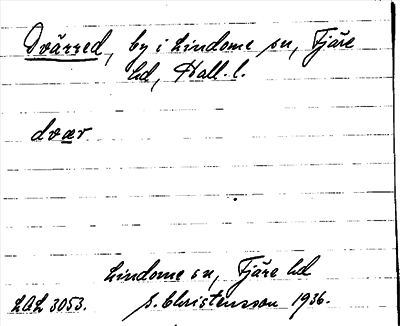 Dvärred, by i Lindome sn, Fjäre
hd, Hall. l.
dvær
Lindome sn, Fjäre hd
LAL 3053. S. Christensson 1936.